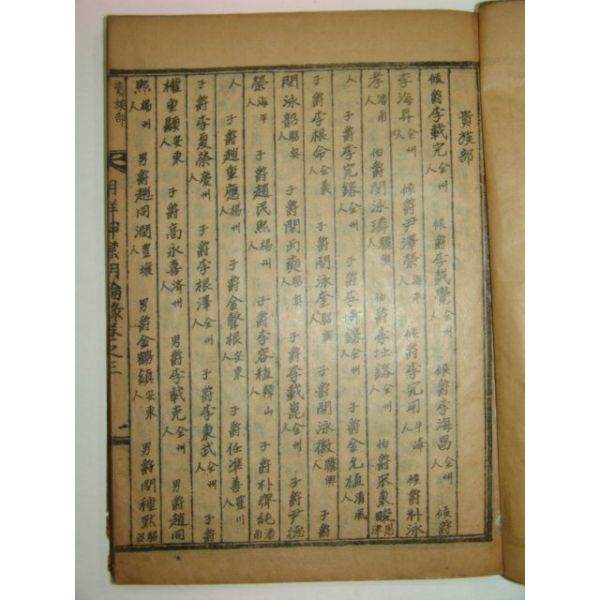 貴族部
侯爵李載完全州人 侯爵李載覺全州人 侯爵李海昌全州人 侯爵
李海昇全州人 侯爵尹澤榮海平人 侯爵李完用牛峰人 侯爵朴泳
孝潘南人 伯爵閔泳璘驪興人 伯爵李址鎔全州人 伯爵宋秉畯恩津
人 子爵李完鎔全州人 子爵李埼鎔全州人 子爵金允植淸風人
子爵李根命全義人 子爵閔泳奎驪興人 子爵閔泳徽驪興人 子爵
閔泳韶驪興人 子爵閔丙奭驪興人 子爵李載崑全州人 子爵尹德
榮海平人 子爵趙民熙楊州人 子爵李容稙韓山人 子爵朴齊純潘南
人 子爵趙重應楊州人 子爵金聲根安東人 子爵任準善豊川人
子爵李夏榮慶州人 子爵李根澤全州人 子爵李東武全州人 子爵
權重顯安東人 子爵高永喜濟州人 男爵李載克全州人 男爵趙同
熙楊州人 男爵趙同潤豊壤人 男爵金鶴鎭安東人 男爵閔種默驪興
貴族部
卷之三